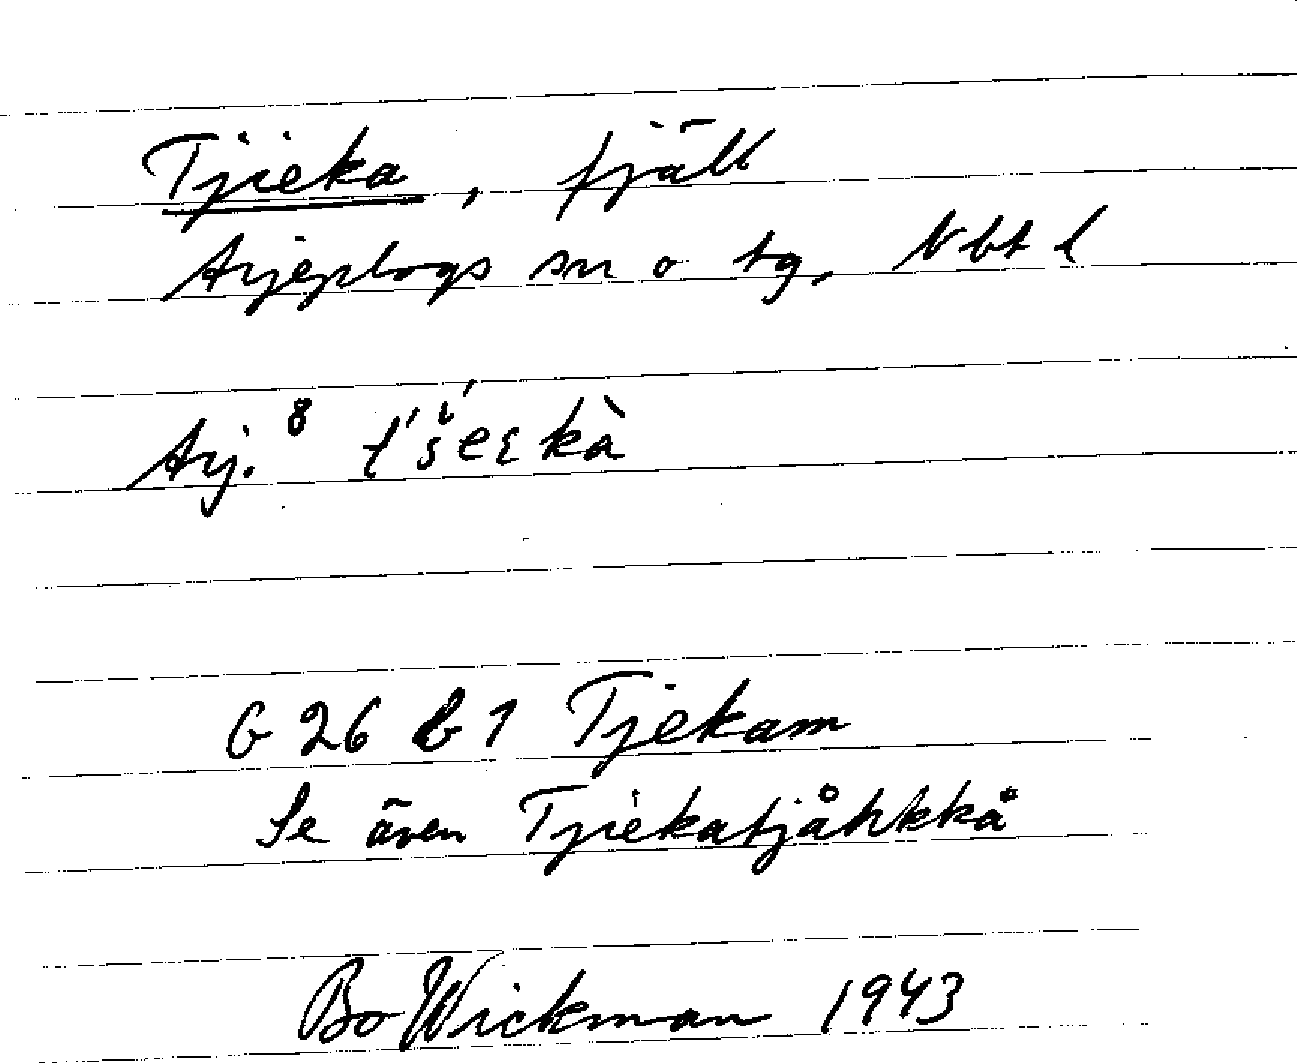 Tjieka, fjäll
Arjeplogs sn o tg, Nbt l
Arj. 8 t́'š́eεkà
G 26 b 1 Tjekam
Se även Tjiekatjåhkkå
Bo Wickman 1943